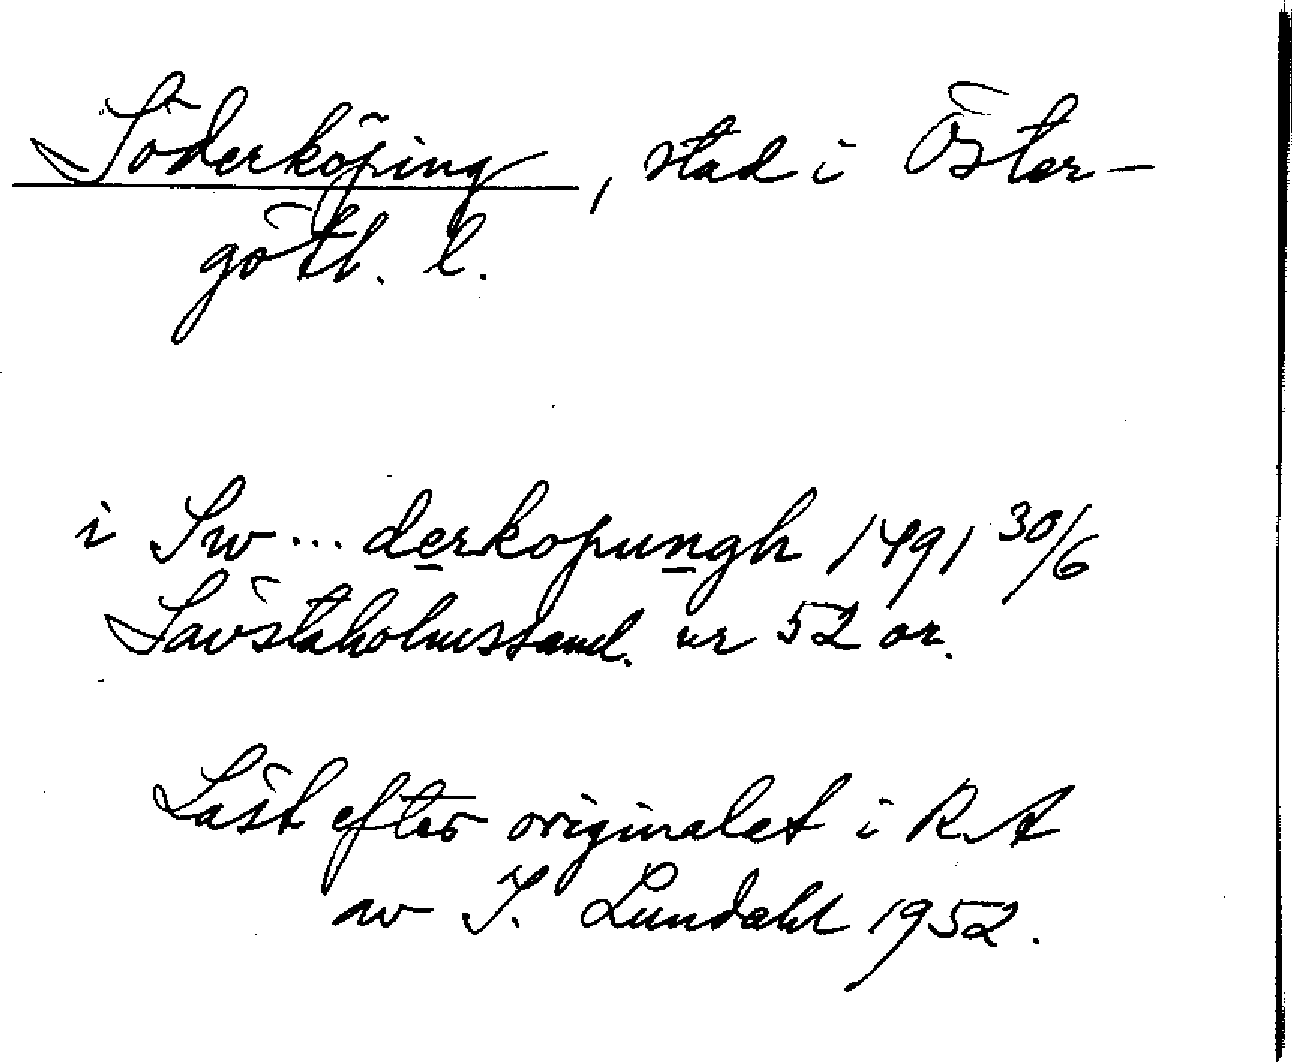 Söderköping, stad i Öster-
götl. l.
i Sw... derkopungh 1491 30/6
Sävstaholmssaml. nr 52 or.
Läst efter originalet i RA
av I. Lundahl 1952.